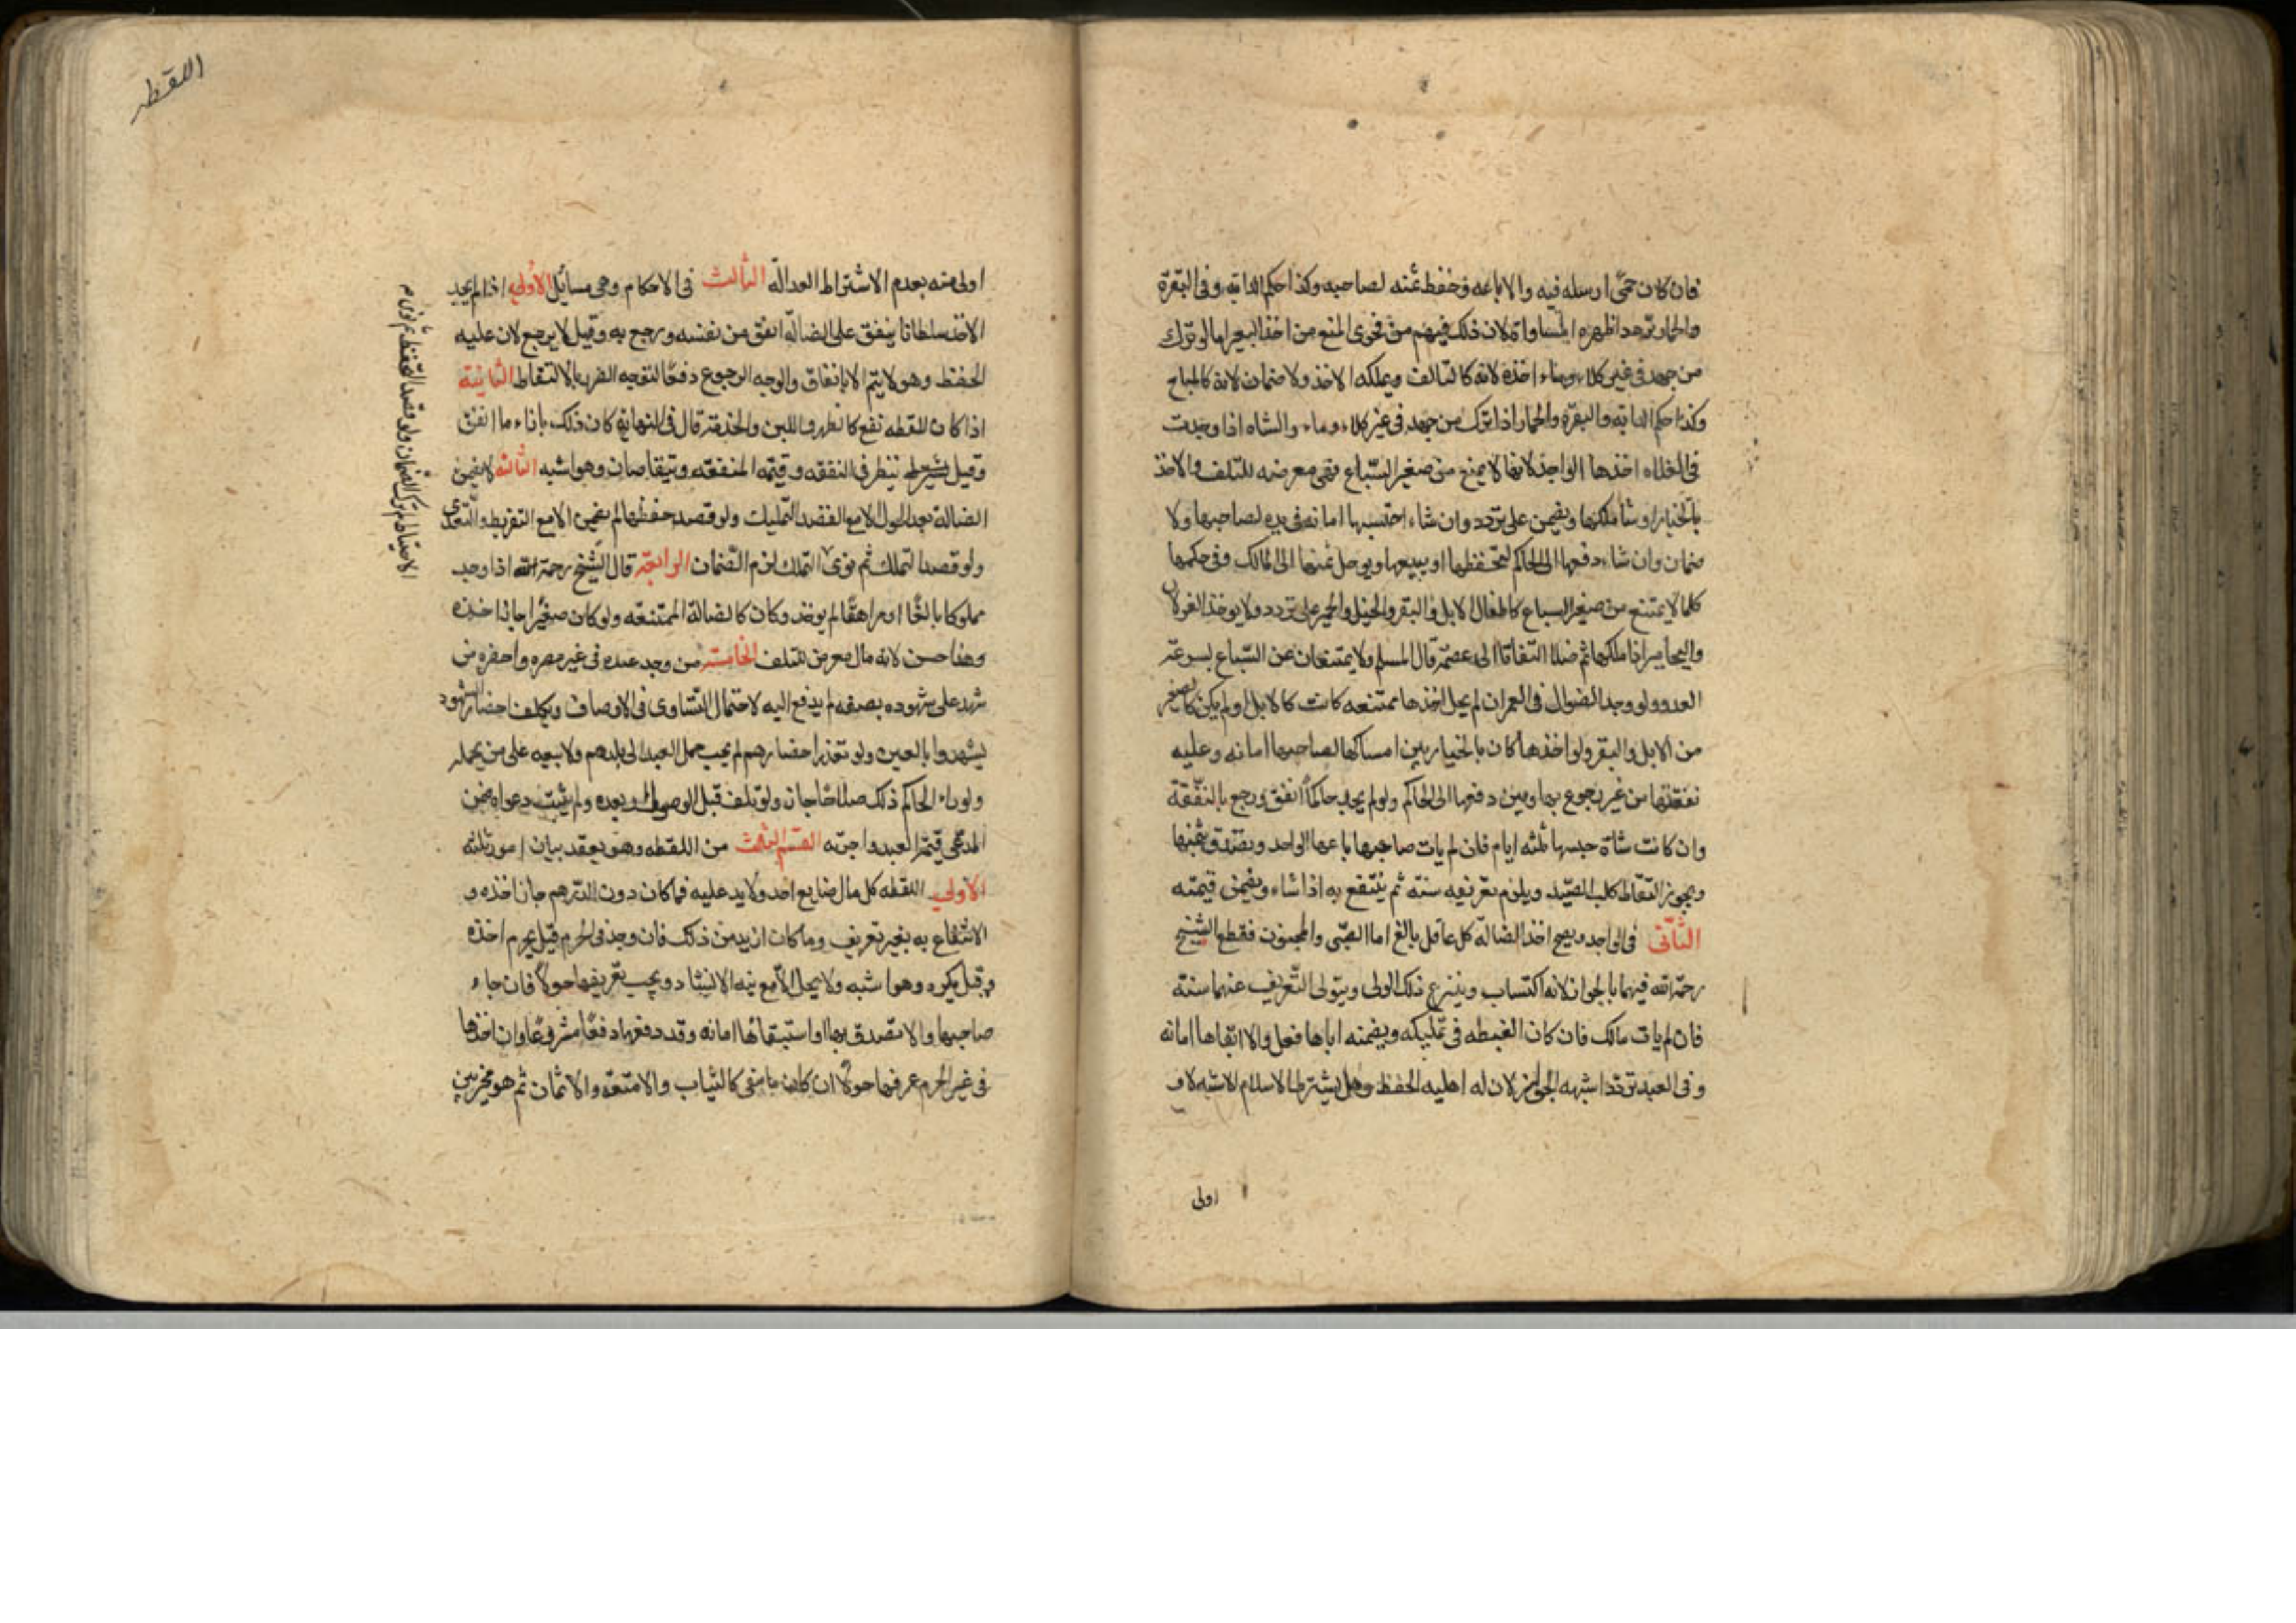 فان كان حمى ارسله فيه والا باعه وحفظ ثمنه لصاحبه وكذا حكم الدابه وفى البقرة
والحمار تردد اظهره المساواة لان ذلك فيهم من فحوى المنع من اخذ البعير اما لو ترك
من جهد فى غير كلاء وماء اخذه لانه كالتالف ويملكه الاخذ ولا ضمان لانه كالمباح
وكذا حكم الدابه والبقره والحمار اذا ترك من جهد فى غير كلاء وماء والشاه اذا وجدت
فى الفلاه اخذها الواجد لانها لا يمنع من صغير السباع فهى معرضه للتلف والاخذ
بالخيار ان شا ملكها ويضمن على تردد وان شاء احتبسها امانه فى يده لصاحبها ولا
ضمان وان شاء دفعها الى الحاكم ليحفظها او يبيعها ويوصل ثمنها الى المالك وفى حكمها
كلما لا يمتنع من صغير السباع كاطفال الابل والبقر والخيل والحمير على تردد ولا يوخذ الغزلان
واليحامير اذا ملكها ثم ضلا التفاتا الى عصمة مال المسلم ولا يمتنعان عن السباع بسرعة
العدو ولو وجد الضوال فى العمران لم يحل اخذها ممتنعه كانت كالابل او لم يكن كالصغير
من الابل والبقر ولو اخذها كان بالخيار بين امساكها لصاحبها امانه وعليه
نفقتها من غير رجوع بها وبين دفعها الى الحاكم ولو لم يجد حاكما انفق ورجع بالنفقة
وان كانت شاة حبسها ثلثه ايام فان لم يات صاحبها باعها الواجد وتصدق بثمنها
ويجوز التقاط كلب الصيد ويلزم تعريفه سنة ثم ينتفع به اذا شاء ويضمن قيمته
الثانى فى الواجد ويصح اخذ الضالة كل عاقل بالغ اما الصبى والمجنون فقطع الشيخ
رحمة الله فيهما بالجواز لانه اكتساب وينتزع ذلك الولى ويتولى التعريف عنهما سنة
فان لم يات مالك فان كان الغبطه فى تمليكه ويضمنه اياها فعل والا ابقاها امانه
وفى العبد تردد اشبهه الجواز لان له اهليه الحفظ وهل يشترط الاسلام الاشبه لا و
اولى
اللقطه
اولى منه بعدم الاشتراط العدالة الثالث فى الاحكام وهى مسايل الاولى اذا لم يجد
الاخذ سلطانا ينفق على الضالة انفق من نفسه ورجع به وقيل لا يرجع لان عليه
الحفظ وهو لا يتم الا بانفاق والوجه الرجوع دفعا لتوجه الضرر بالالتقاط الثانية
اذا كان للقطه نفع كالظهر واللبن والخدمة قال فى النهاية كان ذلك باذاء ما انفق
وقيل ينظر فى النفقه وقيمه المنفعه ويتقاصان وهو اشبه الثالثه لا يضمن
الضالة بعد الحول الا مع القصد التمليك ولو قصد حفظها لم يضمن الا مع التفريط والتعدى
ولو قصد التملك ثم نوى التملك لزم الضمان الرابعة قال الشيخ رحمة الله اذا وجد
مملوكا بالغا او مراهقا لم يوخذ وكان كالضالة الممتنعه ولو كان صغيرا جاز اخذه
وهذا حسن لانه مال معرض للتلف الخامسة من وجد عبده فى غير مصره واحضره من
شهد على شهوده بصفته لم يدفع اليه لاحتمال التساوى فى الاوصاف ويكلف احضار الشهود
ليشهدوا بالعين ولو تعذر احضارهم لم يجب حمل العبد الى بلدهم ولا بيعه على من يحمله
ولو راء الحاكم ذلك صلاحا جاز ولو تلف قبل الوصول او بعده ولم يثبت دعواه ضمن
المدعى قيمة العبد واجرته القسم الثالث من اللقطه وهو يعقد بيان امور ثلثه
الاولى اللقطه كل مال ضايع اخذ ولا يد عليه فما كان دون الدرهم جاز اخذه و
الانتفاع به بغير تعريف وما كان ازيد من ذلك فان وجد فى الحرم قيل يحرم اخذه
وقيل يكره وهو اشبه ولا يحل الا مع نيه الانشاد ويجب تعريفها حولا فان جاء
صاحبها والا تصدق بها او استبقائها امانه وقد دفعها دفعا مشروعا وان اخذها
فى غير الحرم عرفها حولا ان كان ما يبقى كالثياب والامتعه والاثمان ثم هو مخير بين